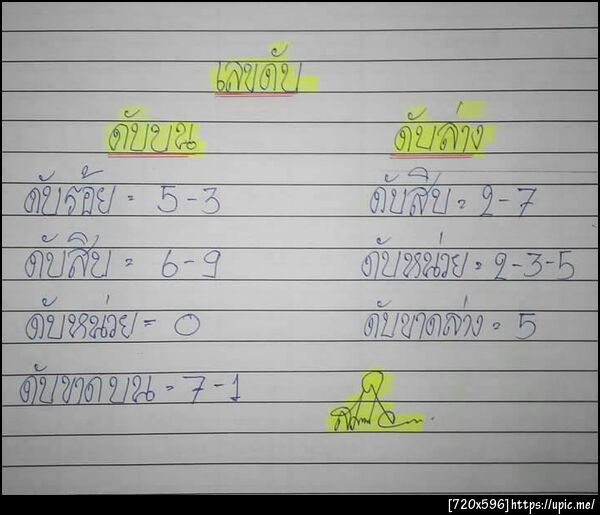 เลขดับ
ดับบน
ดับล่าง
ดับร้อย = 5-3
ดับสิบ = 2-7
ดับสิบ = 6-9
ดับหน่วย = 2-3-5
ดับหน่วย = 0
ดับขาดล่าง = 5
ดับขาดบน = 7-1
[720x596]https://upic.me/